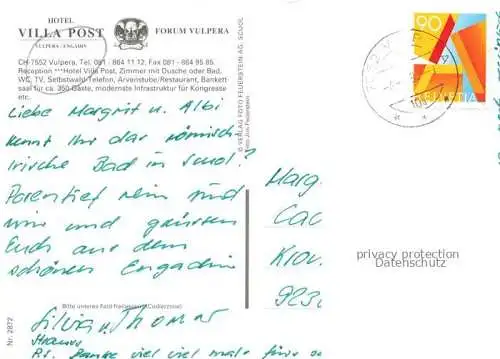 HOTEL
VILLA POST
VULPERA - ENGADIN
FORUM VULPERA
CH-7552 Vulpera, Tel. 081 - 864 11 12, Fax 081 - 864 95 85
Reception ***Hotel Villa Post, Zimmer mit Dusche oder Bad,
WC, TV, Selbstwahl-Telefon, Arvenstube/Restaurant, Bankett-
saal für ca. 350 Gäste, modernste Infrastruktur für Kongresse
etc.
Liebe Margrit u. Albi
kennt Ihr das römisch-
irische Bad in Scuol?
Porentief rein sind
wir und grüssen
Euch aus dem
schönen Engadin
Bitte unteres Feld freilassen (Codierzone)
Silvia u. Thomas
P.S. Danke viel viel mals für
Nr. 2872
© VERLAG FOTO FEUERSTEIN AG, SCUOL
Foto: Jon Feuerstein
90
A
HELVETIA
Marg
Kiov
923
privacy protection
Datenschutz